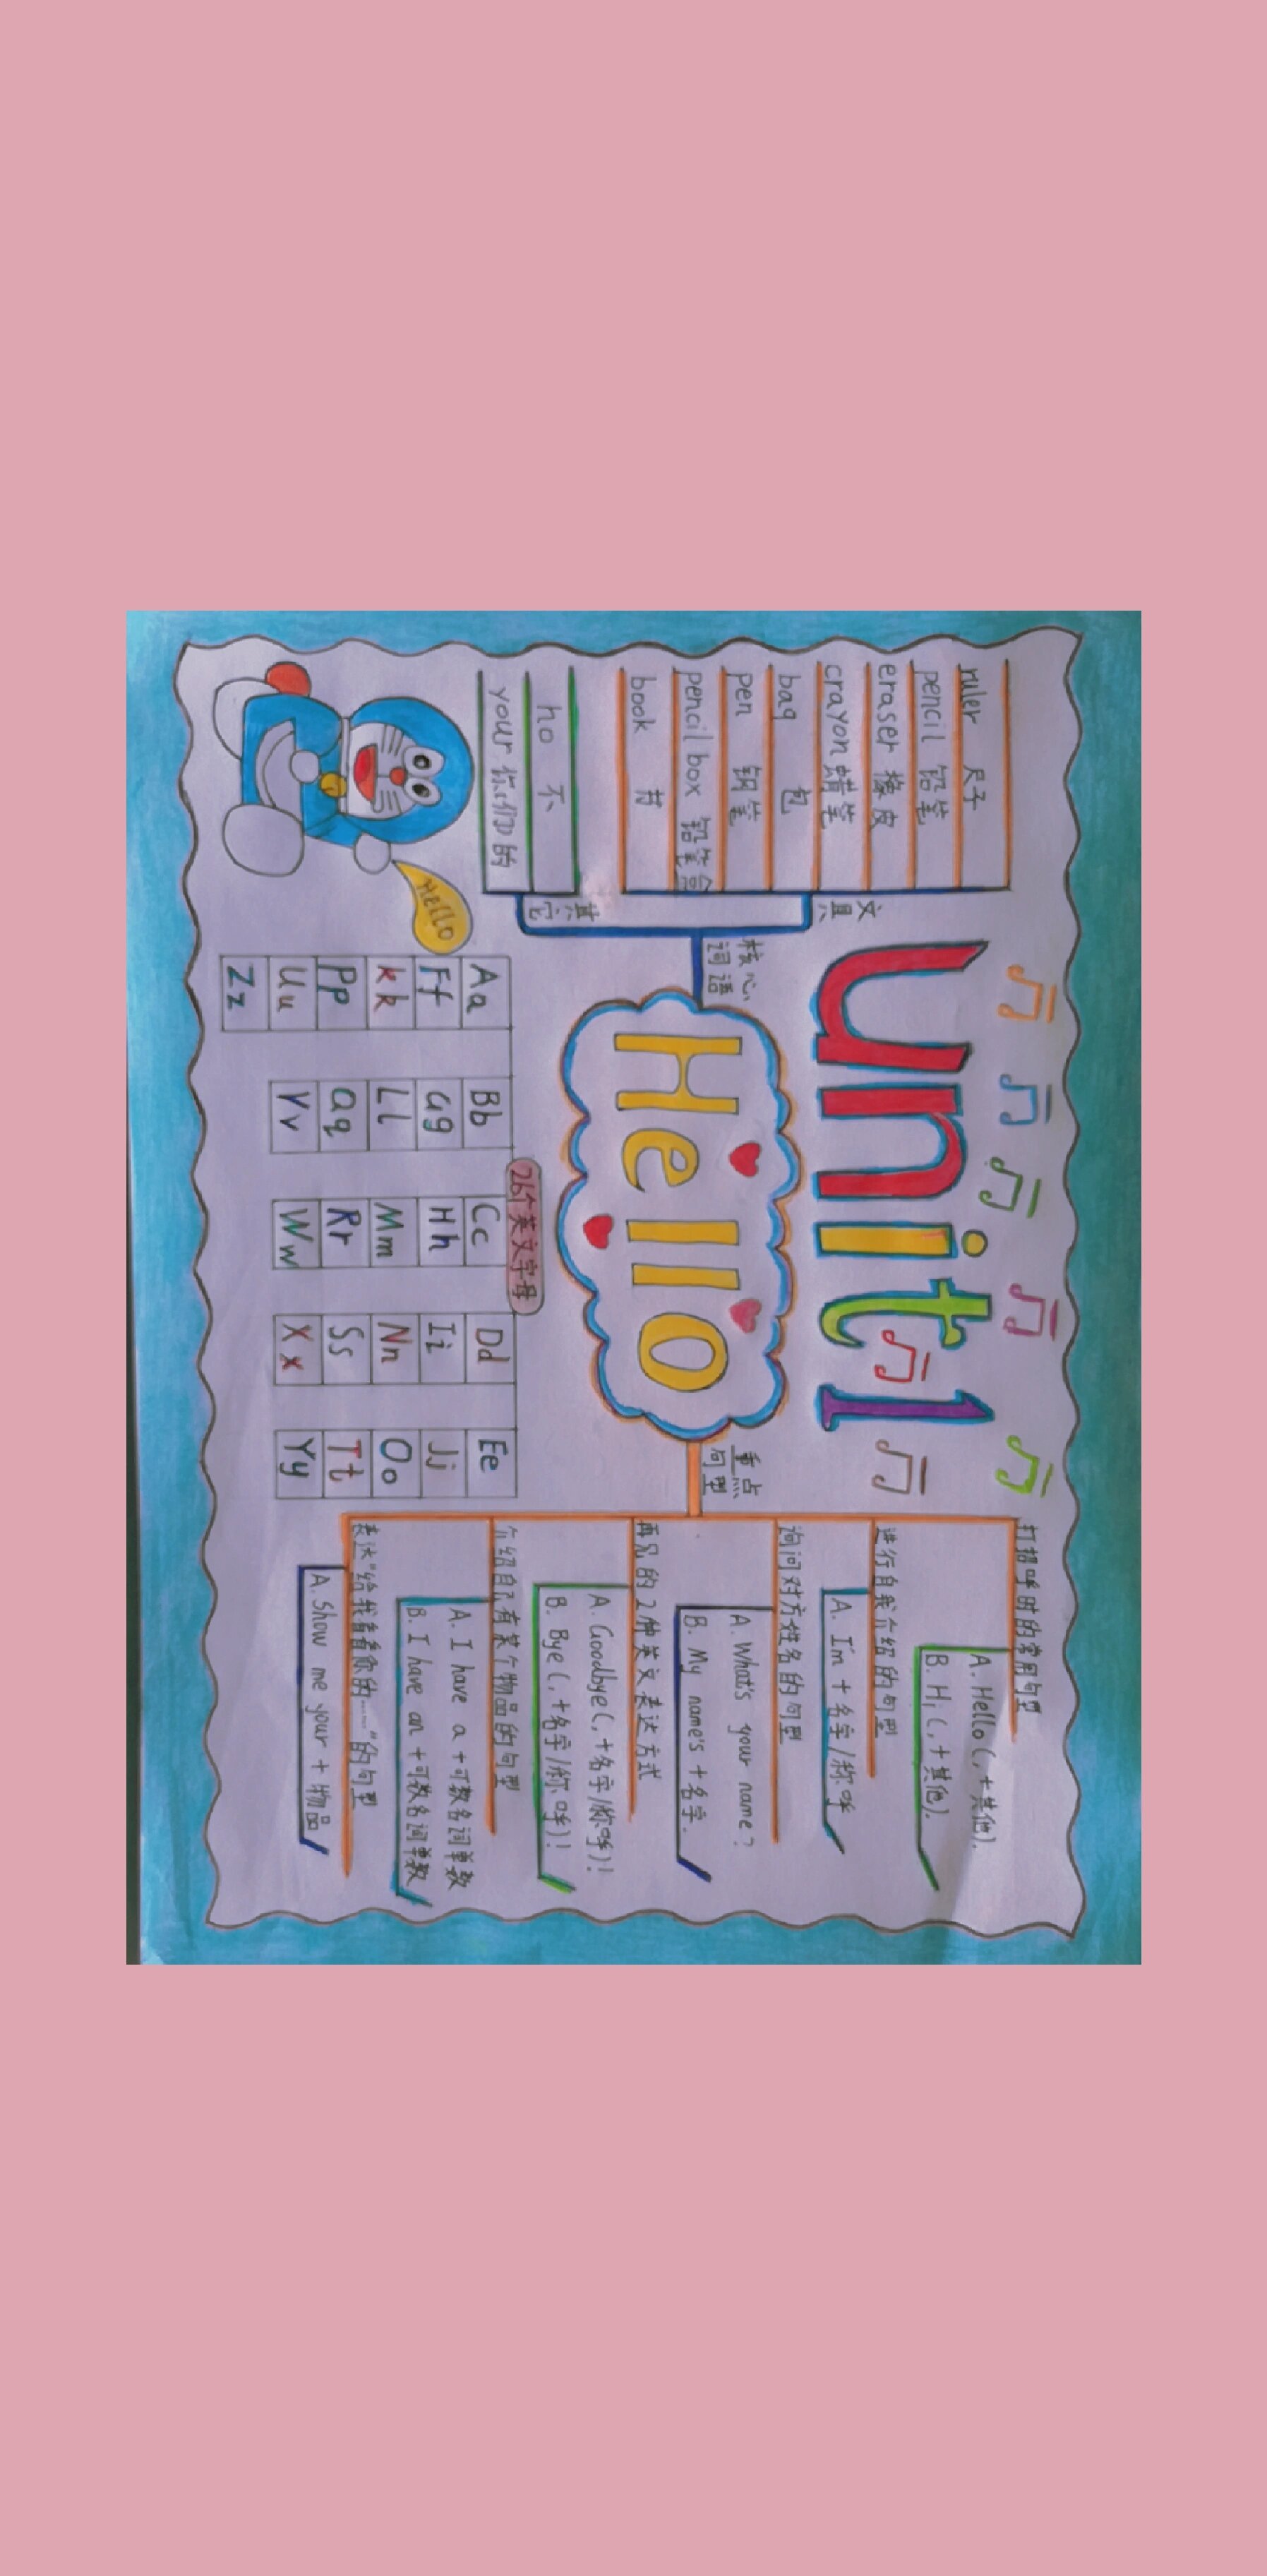 unit 1
Hello
核心词语
文具
ruler 尺子
pencil 铅笔
eraser 橡皮
crayon 蜡笔
bag 包
pen 钢笔
pencil box 铅笔盒
book 书
其它
ho 不
your 你(们)的
Hello
26个英文字母
Aa Bb Cc Dd Ee
Ff Gg Hh Ii Jj
kk Ll Mm Nn Oo
Pp Qq Rr Ss Tt
Uu Vv Ww Xx Yy
Zz
重点句型
打招呼时的常用句型
A. Hello(,+其他).
B. Hi(,+其他).
进行自我介绍的句型
A. I'm + 名字/称呼
询问对方姓名的句型
A. What's your name?
B. My name's + 名字.
再见的2种英文表达方式
A. Goodbye(,+名字/称呼)!
B. Bye(,+名字/称呼)!
介绍自己有某个物品的句型
A. I have a +可数名词单数
B. I have an +可数名词单数
表达"给我看看你的……"的句型
A. Show me your + 物品